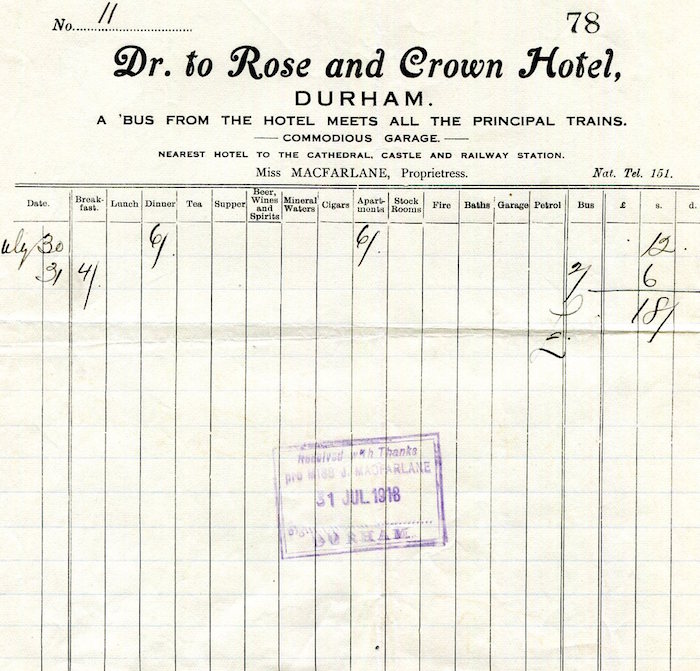 No. 11
78
Dr. to Rose and Crown Hotel,
DURHAM.
A 'BUS FROM THE HOTEL MEETS ALL THE PRINCIPAL TRAINS.
COMMODIOUS GARAGE.
NEAREST HOTEL TO THE CATHEDRAL, CASTLE AND RAILWAY STATION.
Miss MACFARLANE, Proprietress. Nat. Tel. 151.
Date. Break-fast. Lunch Dinner Tea Supper Beer, Wines and Spirits Mineral Waters Cigars Apart-ments Stock Rooms Fire Baths Garage Petrol Bus £ s. d.
July 30 6/. 6/. 12.
31 4/. 2/ 6
18/
Received with Thanks
pro MISS J. MACFARLANE
31 JUL 1918
DURHAM